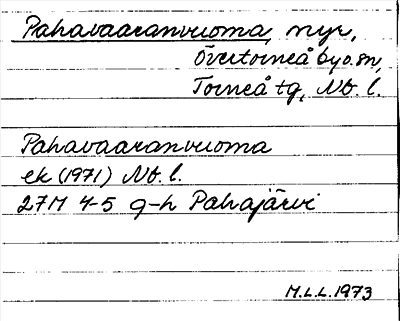 Pahavaaranvuoma, myr,
Övertorneå by o. sn,
Torneå tg, Nb. l.
Pahavaaranvuoma
ek (1971) Nb. l.
27M 4-5 g-h Pahajärvi
M.L.L. 1973